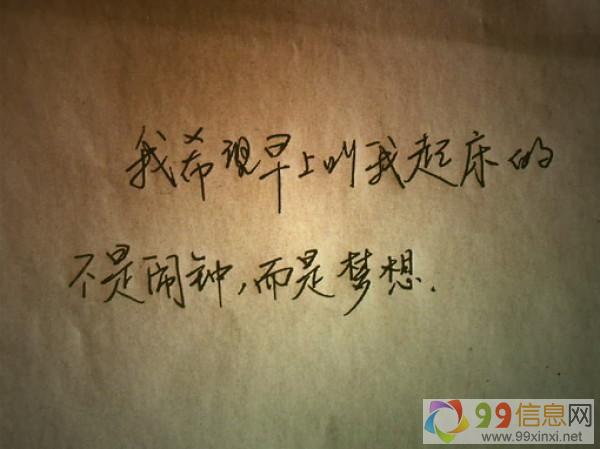 我希望早上叫我起床的
不是闹钟,而是梦想.
99信息网
www.99xinxi.net